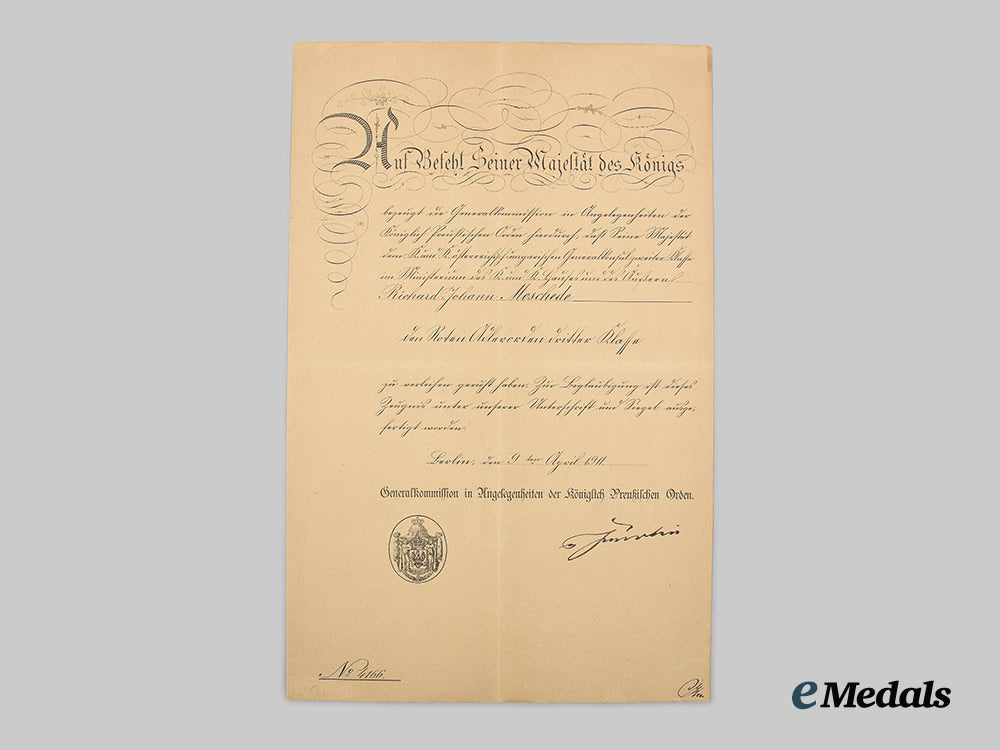 Auf Befehl Seiner Majestät des Königs
bezeugt die Generalkommission in Angelegenheiten der
Königlich Preußischen Orden hierdurch, daß Seine Majestät
dem K. und K. österreichisch-ungarischen Generalkonsul zweiter Klasse
im Ministerium des K. und K. Hauses und des Äußern
Richard Johann Meschede
den Roten Adlerorden dritter Klasse
zu verleihen geruht haben. Zur Beglaubigung ist dieses
Zeugnis unter unserer Unterschrift und Siegel ausge-
fertigt worden.
Berlin, den 9ten April 1911.
Generalkommission in Angelegenheiten der Königlich Preußischen Orden.
No
eMedals